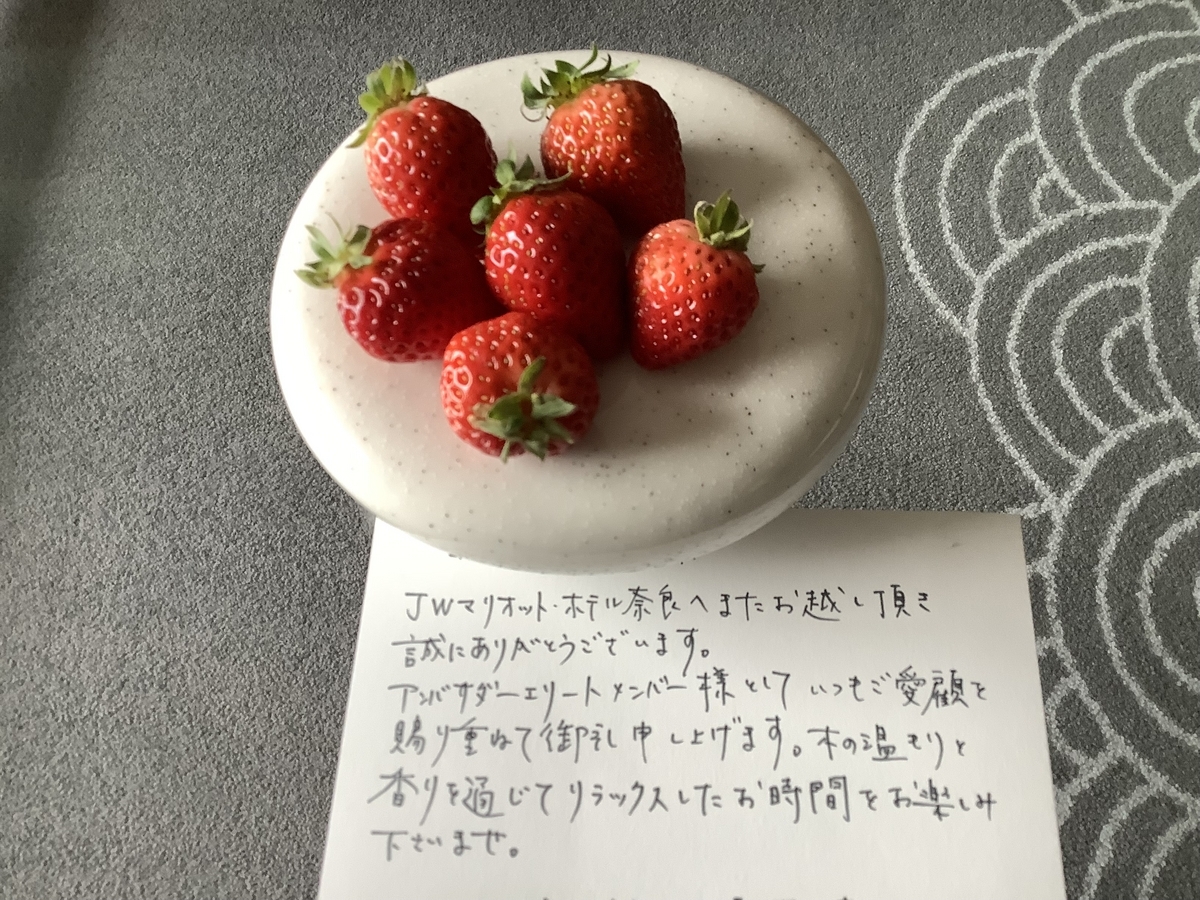 JWマリオット・ホテル奈良へまたお越し頂き
誠にありがとうございます。
アンバサダーエリートメンバー様として いつもご愛顧を
賜り重ねて御礼申し上げます。木の温もりと
香りを通じてリラックスしたお時間をお楽しみ
下さいませ。